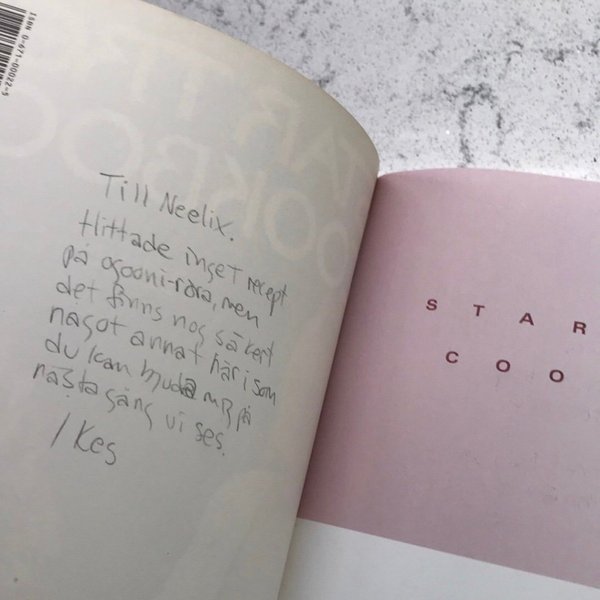 ISBN 0-671-00022-5
Till Neelix.
Hittade inget recept
på ogooni-röra, men
det finns nog säkert
något annat här i som
du kan bjuda mig på
nästa gång vi ses.
/Kes
STAR
COO